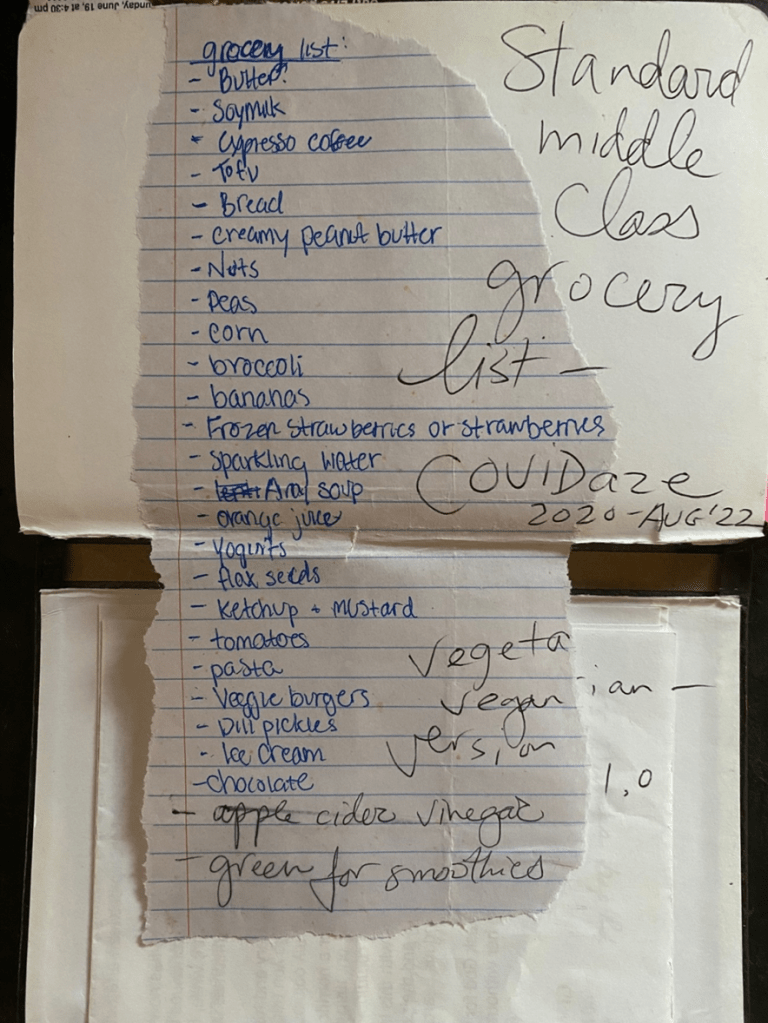 unday, June 19, at 4:30 pm
grocery list:
- Butter?
- Soymilk
- expresso coffee
- Tofu
- Bread
- creamy peanut butter
- Nuts
- peas
- corn
- broccoli
- bananas
- Frozen strawberries or strawberries
- sparkling water
- soup
- orange juice
- Yogurts
- flax seeds
- ketchup + mustard
- tomatoes
- pasta
- Veggie burgers
- Dill pickles
- Ice cream
- chocolate
- apple cider vinegar
- green for smoothies
Standard
middle
Class
grocery
list -
COVIDaze
2020 - AUG '22
vegeta
rian -
vegan
version
1.0